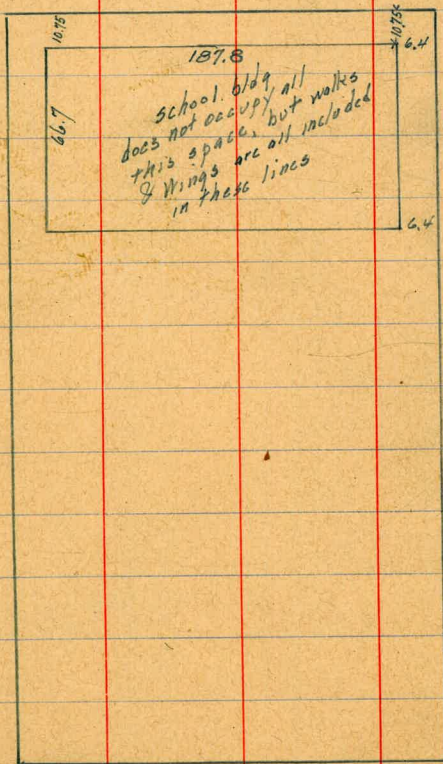 10.75
10.75
6.4
187.8
66.7
School. bldg
does not occupy all
this space, but walks
& Wings are all included
in these lines
6.4